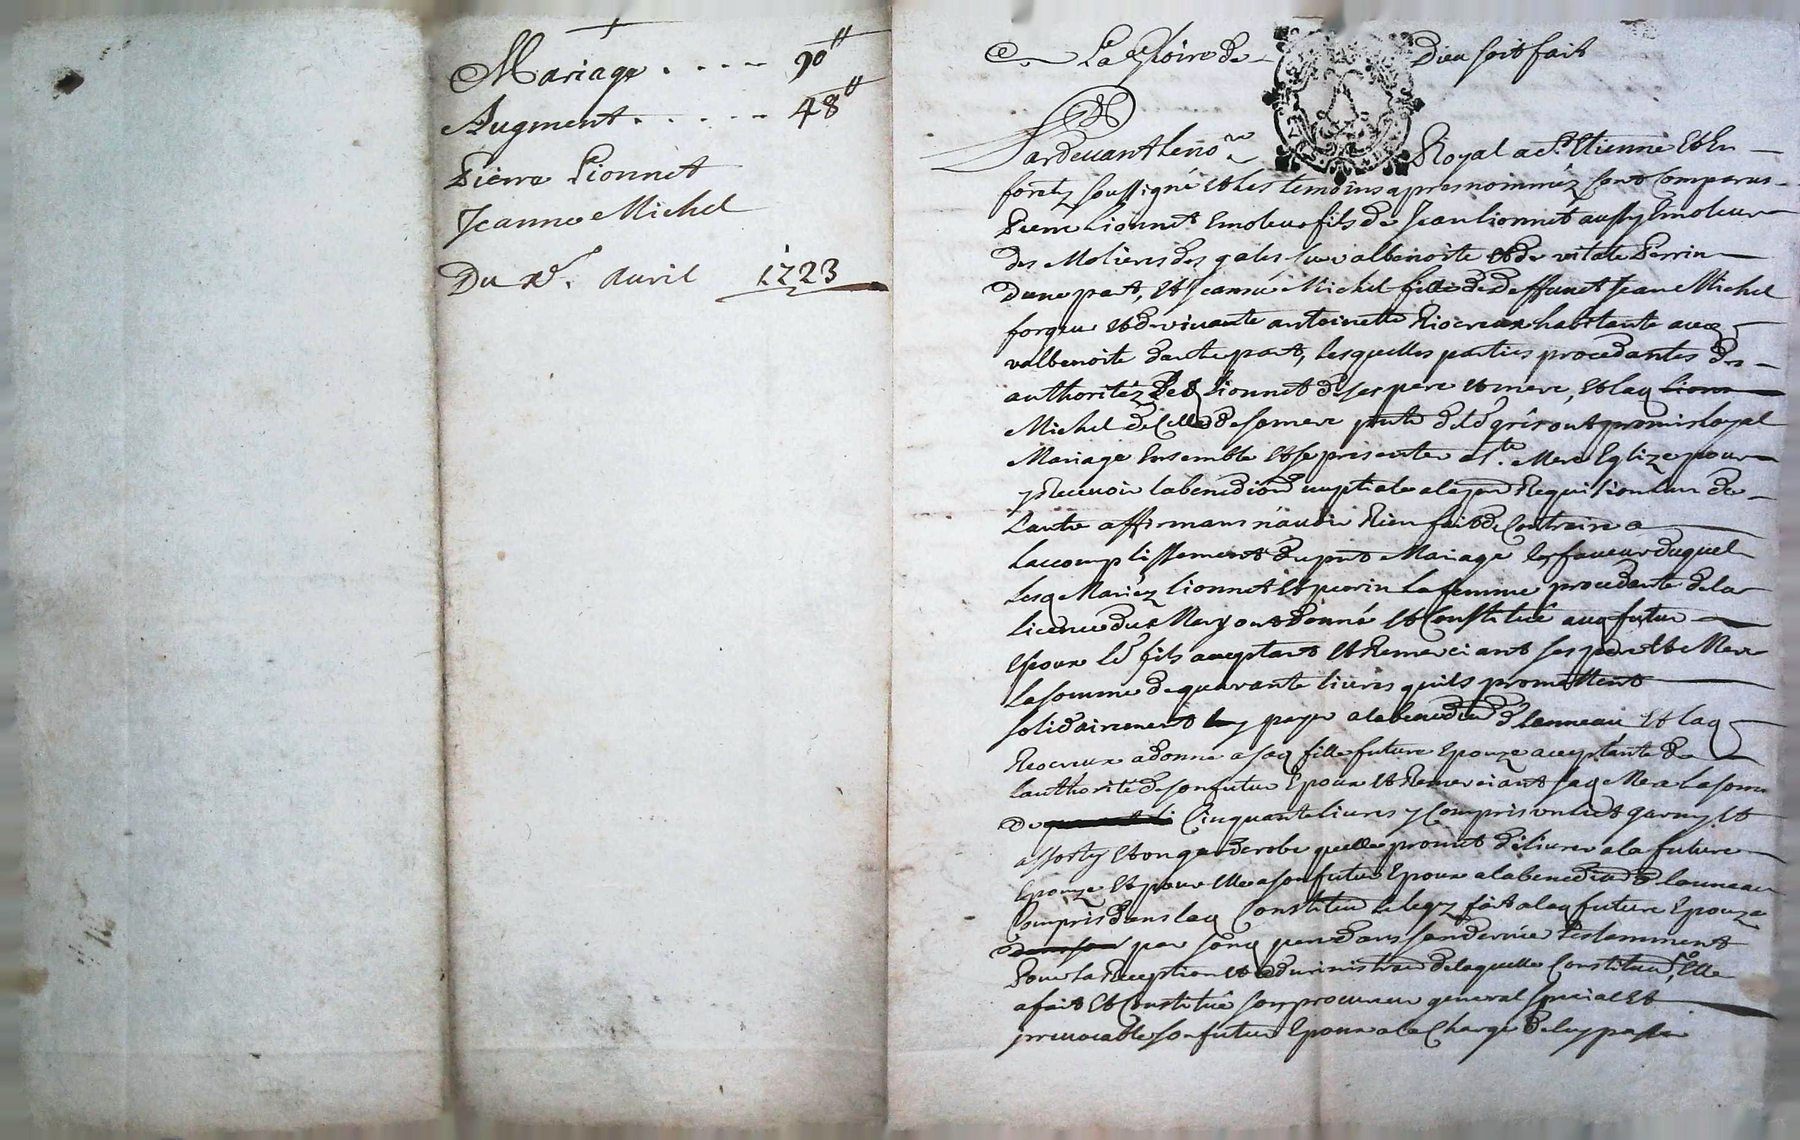 Mariage . . . . 90ᵗᵗ
Augment . . . . . . 48ᵗᵗ
Pierre Lionnet
Jeanne Michel
Du xᵉ. Auril 1723
La Gloire de Dieu soit fait
Pardeuant le noʳᵉ Royal a Sᵗ Etienne Et En
foretz soussigné Et Les temoins apres nomméz sont Comparus
Pierre Lionnet Emoleur fils de Jean Lionnet aussy Emoleur
des Molieres des gales sur valbenoite Et de vitale Perrin
dune part, Et Jeanne Michel fille de deffunct Jean Michel
forgeur Et de viuante antoinette Riocreux habitante audᵗ
valbenoite dautre part, lesquelles parties procedantes des
authoritéz Led Lionnet de ses pere et mere, Et lad
Michel de Celle de sa mere ont promis Loyal
Mariage Ensemble Et se presenter a Sᵗᵉ. Mere Eglize pour
y Receuoir la benediõn nuptiale a la prᵉ Requisition Lun de
Lautre affirmans n'auoir Rien fait de Contraire a
Laccomplissement du pnt Mariage En faueur duquel
Lesd Mariéz Lionnet Et perin La femme procedante de la
licence dud Mary ont donné Et Constitué aud futur
Epoux Ld fils acceptant Et Remerciant ses pere Et Mere
La somme de quarante liures quils promettent
solidairement luy payer a la benediõn de lanneau Et lad
Riocreux a donné a sad fille future Epouze acceptante de
lauthorité de son futur Epoux Et Remerciant sad Mere La som̃e
De Cinquante liures y Compris un lict garny Et
assorty Et un garderobe quelle promet deliurer a la future
Epouze Et pour Elle a son futur Epoux a la benediõn de lanneau
Compris dans lad Constituõn Le legz fait a lad future Epouze
par sond pere dans son dernier testamment
Pour la Reception Et administraõn de laquelle Constituõn, Elle
a fait Et Constitué son procureur general special Et
irreuocable son futur Epoux a la Charge de luy passer